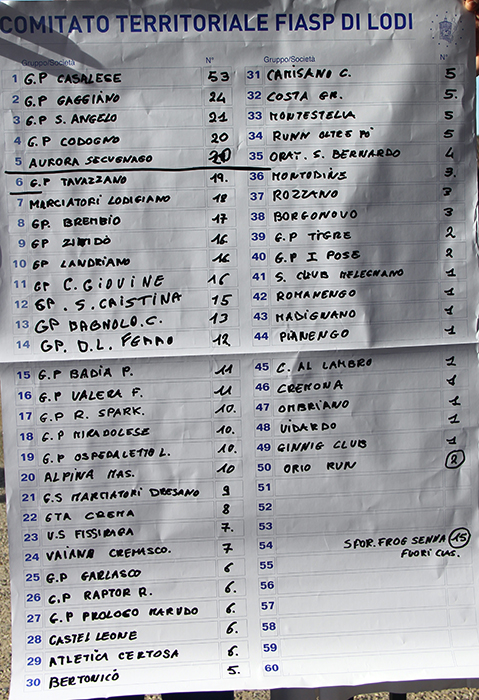 COMITATO TERRITORIALE FIASP DI LODI
Gruppo/Società N°
1 G.P CASALESE 53
2 G.P GAGGIANO 24
3 G.P S. ANGELO 21
4 G.P CODOGNO 20
5 AURORA SECUGNAGO 20
6 G.P TAVAZZANO 19.
7 MARCIATORI LODIGIANO 18
8 GP. BREMBIO 17
9 GP ZIBIDO 16
10 GP LANDRIANO 16
11 GP C. GIOVINE 16
12 GP. S. CRISTINA 15
13 GP BAGNOLO. C. 13
14 GP. D.L. FERRO 12
15 G.P BADIA P. 11
16 G.P VALERA F. 11
17 G.P R. SPARK. 10.
18 G.P MIRADOLESE 10.
19 G.P OSPEDALETTO L. 10.
20 ALPINA MAS. 10
21 G.S MARCIATORI DRESANO 9
22 GTA CREMA 8
23 U.S FISSIRAGA 7.
24 VAIANO CREMASCO. 7
25 G.P GARLASCO 6
26 G.P RAPTOR R. 6.
27 G.P PROLOGO MARUDO 6.
28 CASTEL LEONE 6.
29 ATLETICA CERTOSA 6.
30 BERTONICO 5.
Gruppo/Società N°
31 CAMISANO C. 5
32 COSTA GR. 5.
33 MONTESTELLA 5
34 RUNN OLTRE PÒ 5
35 ORAT. S. BERNARDO 4
36 MONTODINE 3.
37 ROZZANO 3
38 BORGONOVO 3
39 G.P TIGRE 2
40 G.P I POSE 2
41 S. CLUB MELEGNANO 1
42 ROMANENGO 1
43 MADIGNANO 1
44 PIANENGO 1
45 C. AL LAMBRO 1
46 CREMONA 1
47 OMBRIANO 1
48 VIDARDO 1
49 GINNIG CLUB 1
50 ORIO RUN 2
51
52
53
54 SPOR. FROG SENNA 15
FUORI CLAS.
55
56
57
58
59
60